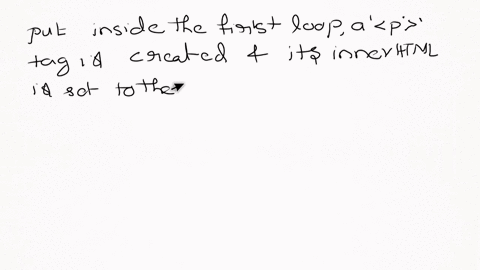 put inside the first loop, a '<p>'
tag is created & its innerHTML
is set to the